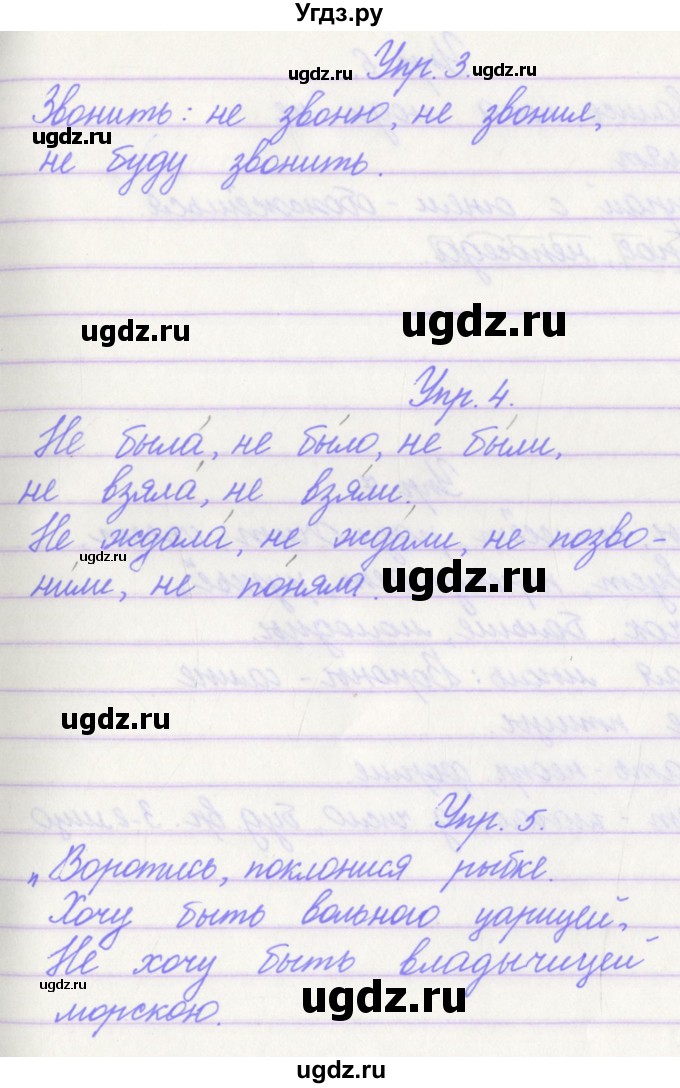 Угдз.ру
ugdz.ru Упр. 3. ugdz.ru
Звонить: не звоню, не звонил,
ugdz.ru
не буду звонить.
ugdz.ru ugdz.ru
Упр. 4.
Не была́, не бы́ло, не бы́ли,
не взяла́, не взя́ли.
Не ждала́, не жда́ли, не позво-
ugdz.ru
ни́ли, не по́няла. ugdz.ru
ugdz.ru
Упр. 5.
„Воротись, поклонися рыбке.
Хочу быть вольною царицей,
Не хочу быть владычицей
ugdz.ru ugdz.ru
морскою.
ugdz.ru